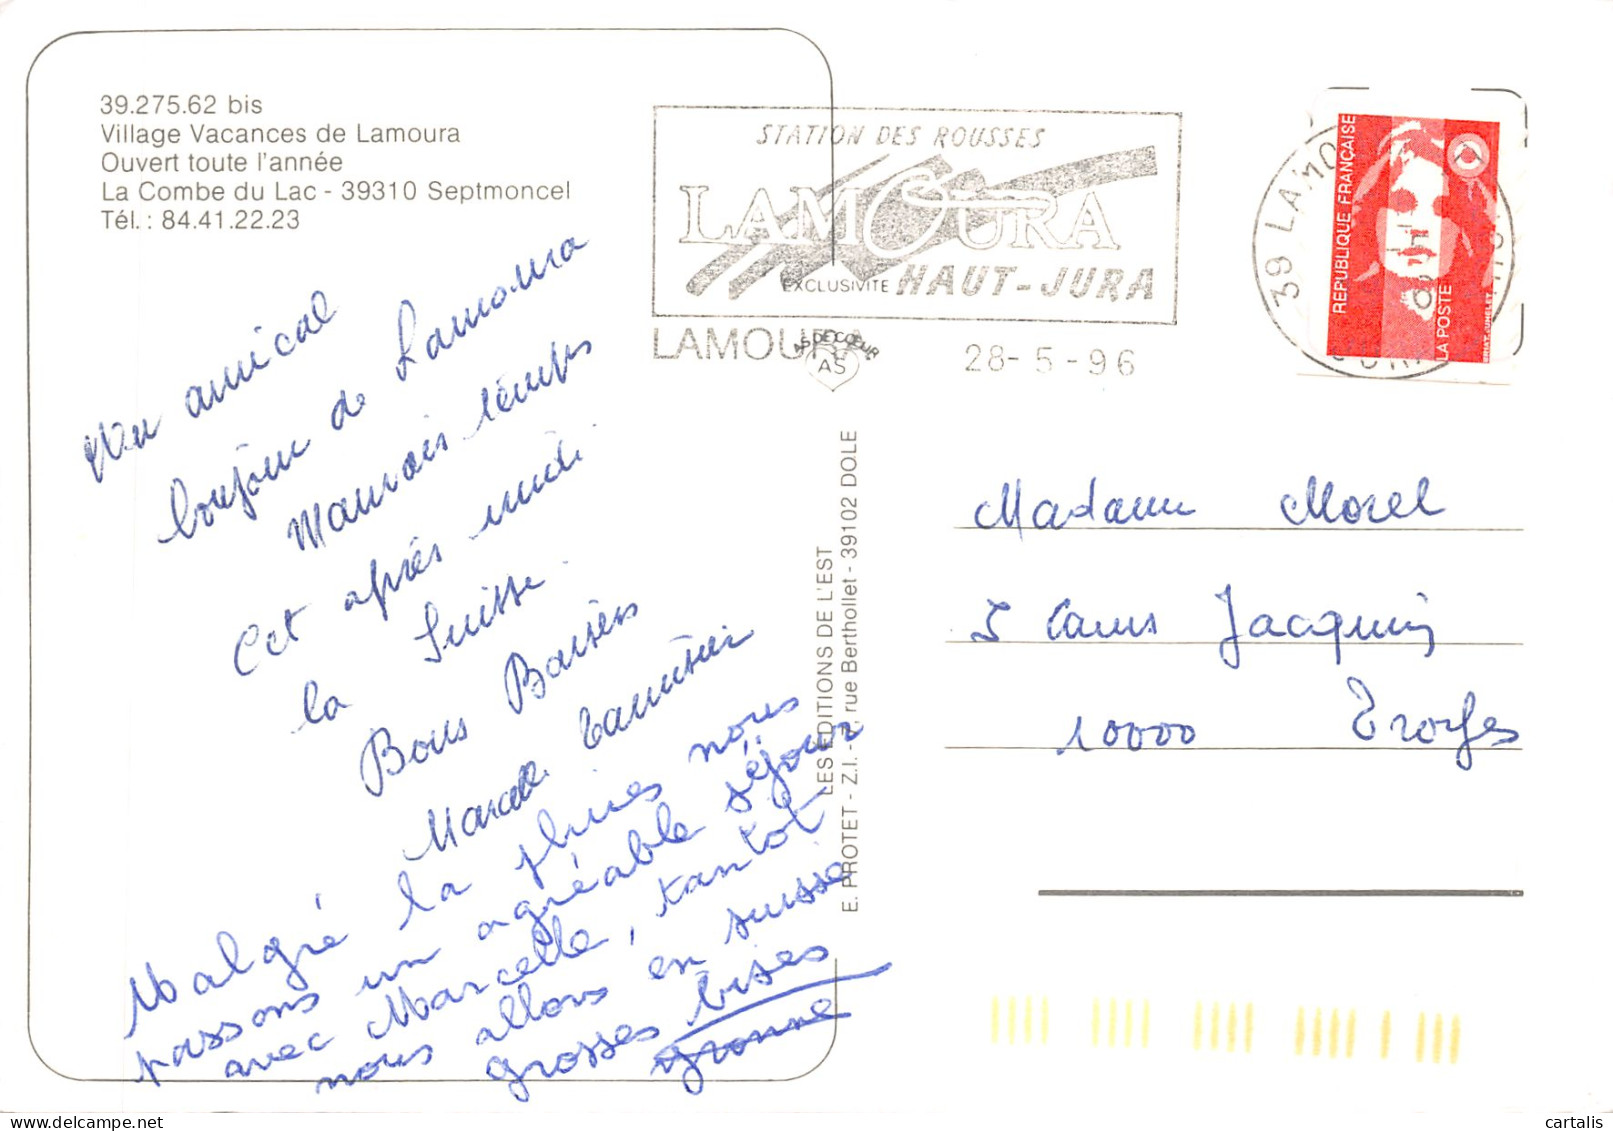 39.275.62 bis
Village Vacances de Lamoura
Ouvert toute l'année
La Combe du Lac - 39310 Septmoncel
Tél. : 84.41.22.23
STATION DES ROUSSES
LAMOURA
EXCLUSIVITE HAUT-JURA
LAMOURA
AS DE CŒUR
AS
28-5-96
39 LAMO
REPUBLIQUE FRANÇAISE
LA POSTE
Un amical
bonjour de Lamoura
Mauvais temps
Cet après midi
la Suisse.
Bons Baisers
Marcelle
Malgré la pluies nous
passons un agréable séjour
avec Marcelle, tantot
nous allons en suisse
grosses bises
LES EDITIONS DE L'EST
E. PROTET - Z.I. - rue Berthollet - 39102 DOLE
Madame Morel
5 Cours Jacquin
10000 Troyes
cartalis